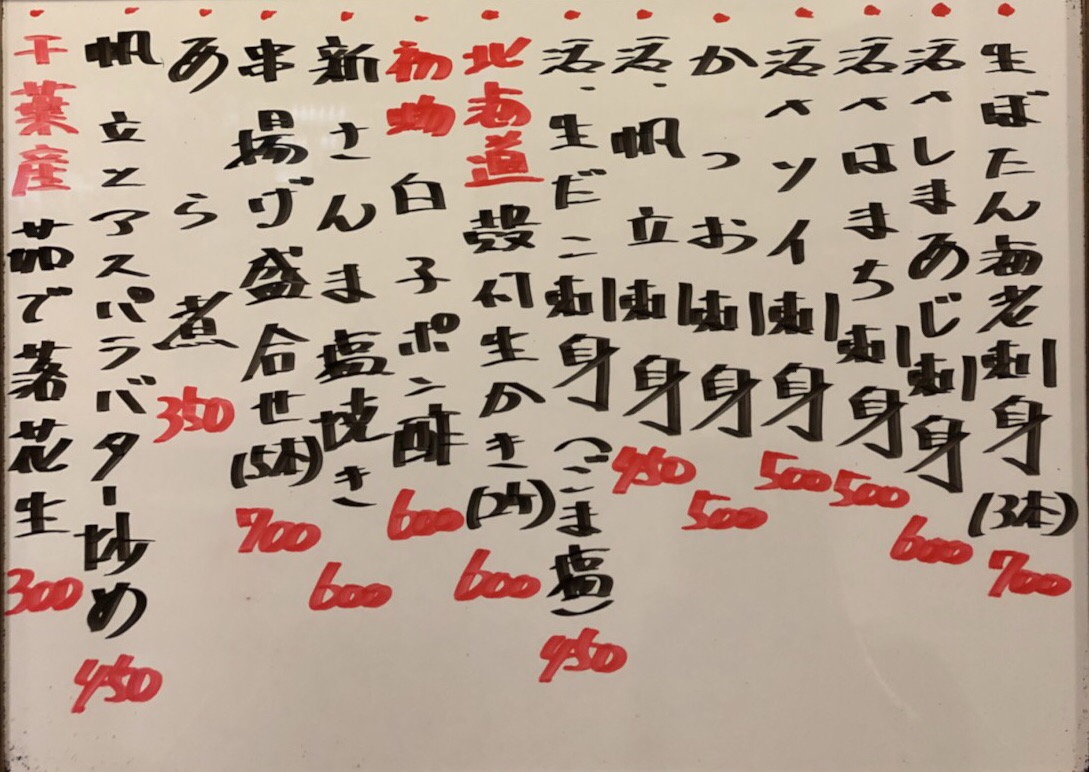 生ぼたん海老刺身(3本)700
活〆しまあじ刺身600
活〆はまち刺身500
活〆ソイ刺身500
かつお刺身500
活、帆立刺身450
活、生だこ刺身(ごま塩)450
北海道殻付生かき(2ケ)600
初物白子ポン酢600
新さんま塩焼き600
串揚げ盛合せ(5本)700
あら煮350
帆立とアスパラバター炒め450
千葉産茹で落花生300